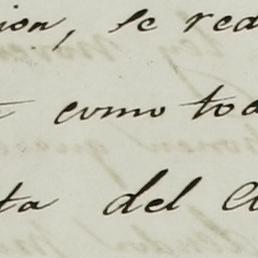 ion, se rea
como tod
ta del C